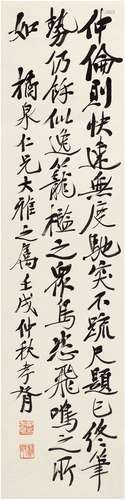 仲倫則快速無度馳突不疏尺題已終筆
勢仍餘似逸籠檻之眾鳥悲飛鳴之所
如
橘泉仁兄大雅之屬壬戌仲秋孝胥